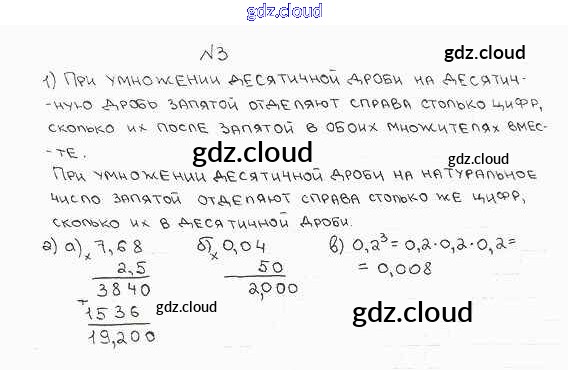 gdz.cloud
N3
gdz.cloud
1) ПРИ УМНОЖЕНИИ ДЕСЯТИЧНОЙ ДРОБИ НА ДЕСЯТИЧ-
-НУЮ ДРОБЬ ЗАПЯТОЙ ОТДЕЛЯЮТ СПРАВА СТОЛЬКО ЦИФР,
СКОЛЬКО ИХ ПОСЛЕ ЗАПЯТОЙ В ОБОИХ МНОЖИТЕЛЯХ ВМЕС-
-ТЕ.
gdz.cloud
gdz.cloud
ПРИ УМНОЖЕНИИ ДЕСЯТИЧНОЙ ДРОБИ НА НАТУРАЛЬНОЕ
ЧИСЛО ЗАПЯТОЙ ОТДЕЛЯЮТ СПРАВА СТОЛЬКО ЖЕ ЦИФР,
СКОЛЬКО ИХ В ДЕСЯТИЧНОЙ ДРОБИ.
2) а) × 7,68
2,5
3840
+
1536
19,200
б) × 0,04
50
2,000
в) 0,2³ = 0,2·0,2·0,2 =
= 0,008
gdz.cloud
gdz.cloud